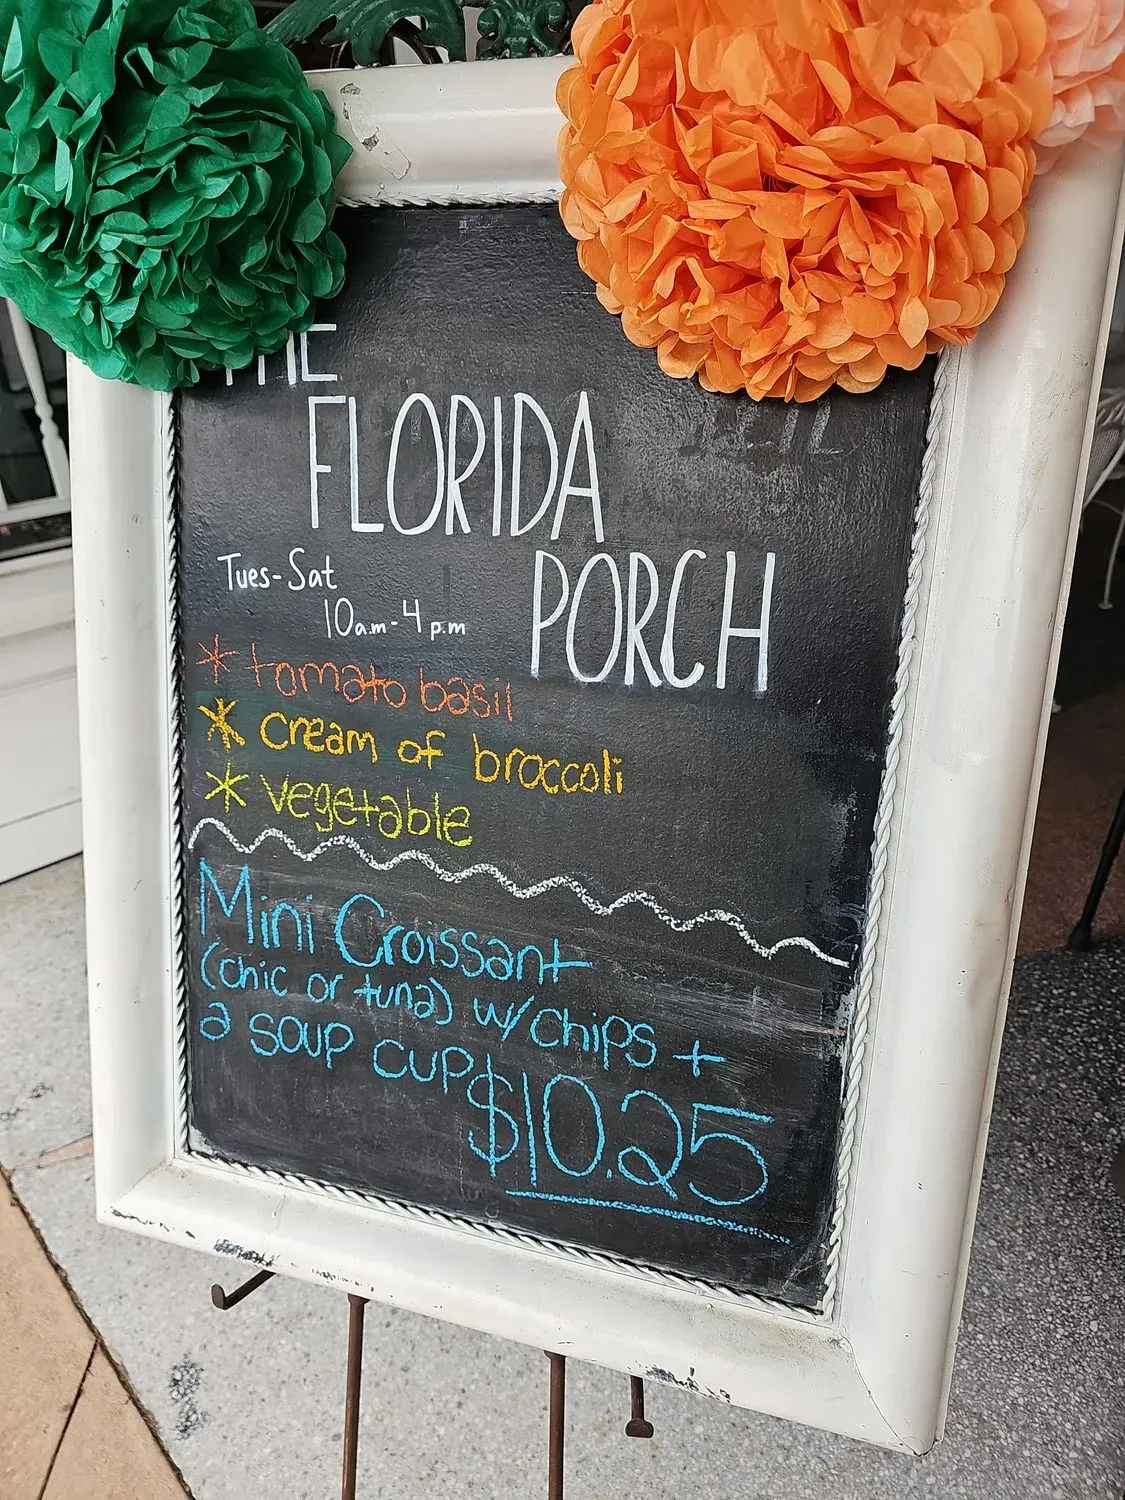 THE
FLORIDA
PORCH
Tues-Sat
10a.m-4p.m
* tomato basil
* cream of broccoli
* vegetable
Mini Croissant
(chic or tuna) w/chips +
a soup cup $10.25